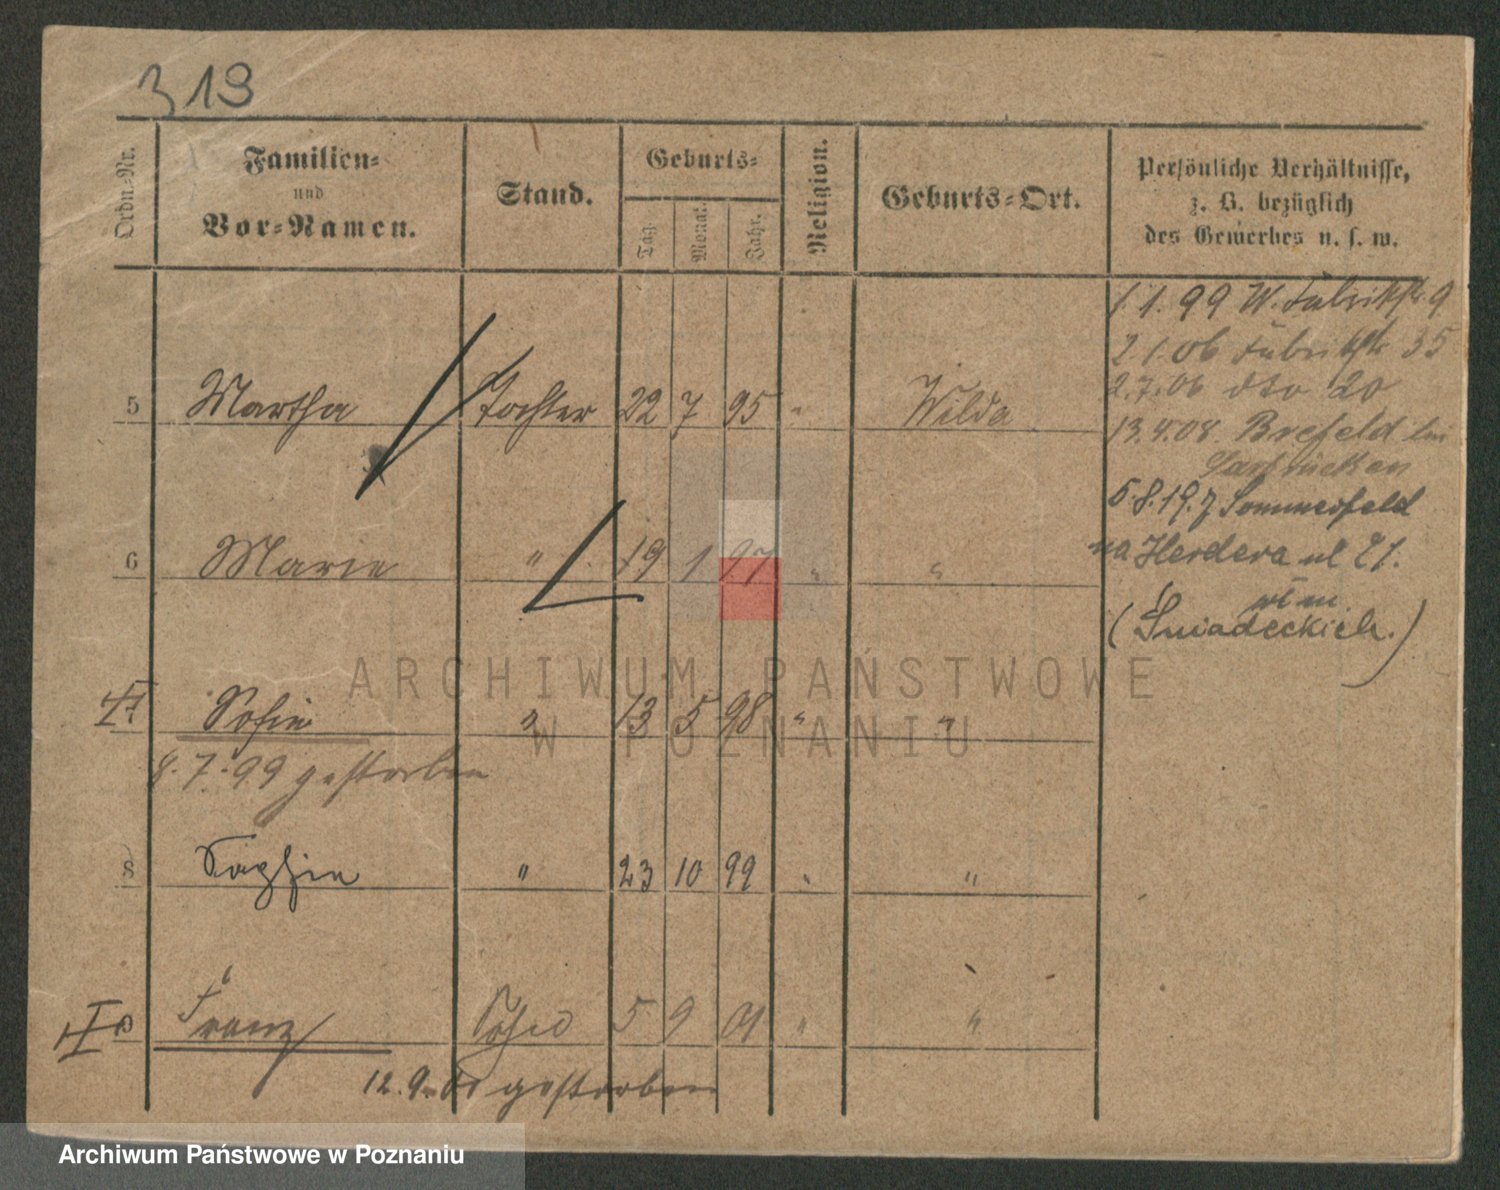 319
Ordn.-Nr.
Familien-
und
Vor-Namen.
Stand.
Geburts-
Tag.
Monat.
Jahr.
Religion.
Geburts-Ort.
Persönliche Verhältnisse,
z. B. bezüglich
des Gewerbes u. s. w.
1.1.99 W. Fabrikstr. 9
2.1.06 Fabrikstr 35
2.7.06 dto 20
13.4.08. Brefeld bei
5.8.19.7 Sommerfeld
na Herdera ul 21.
(Śniadeckich.)
5 Martha Tochter 22 7 95 " Wilda
6 Marie " 19 1 97 " "
7 Sofie " 13 5 98 " "
8.7.99 gestorben
8 " 23 10 99 " "
9 Franz Sohn 5 9 01 " "
12.9. gestorben
ARCHIWUM PAŃSTWOWE
W POZNANIU
Archiwum Państwowe w Poznaniu